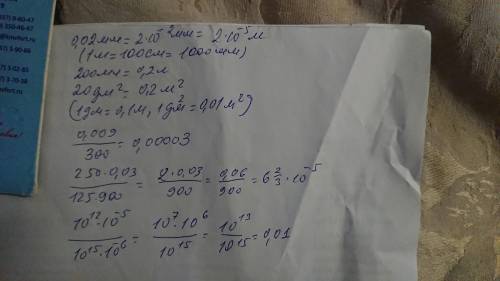 0,02мм = 2·10⁻²мм = 2·10⁻⁵м
(1м = 100см = 1000мм)
200мл = 0,2л
20дм² = 0,2м²
(1дм = 0,1м, 1дм² = 0,01м²)
0,009/300 = 0,00003
250·0,03/125·900 = 2·0,03/900 = 0,06/900 = 6 2/3·10⁻⁵
10¹²·10⁻⁵/10¹⁵·10⁻⁶ = 10⁷·10⁶/10¹⁵ = 10¹³/10¹⁵ = 0,01